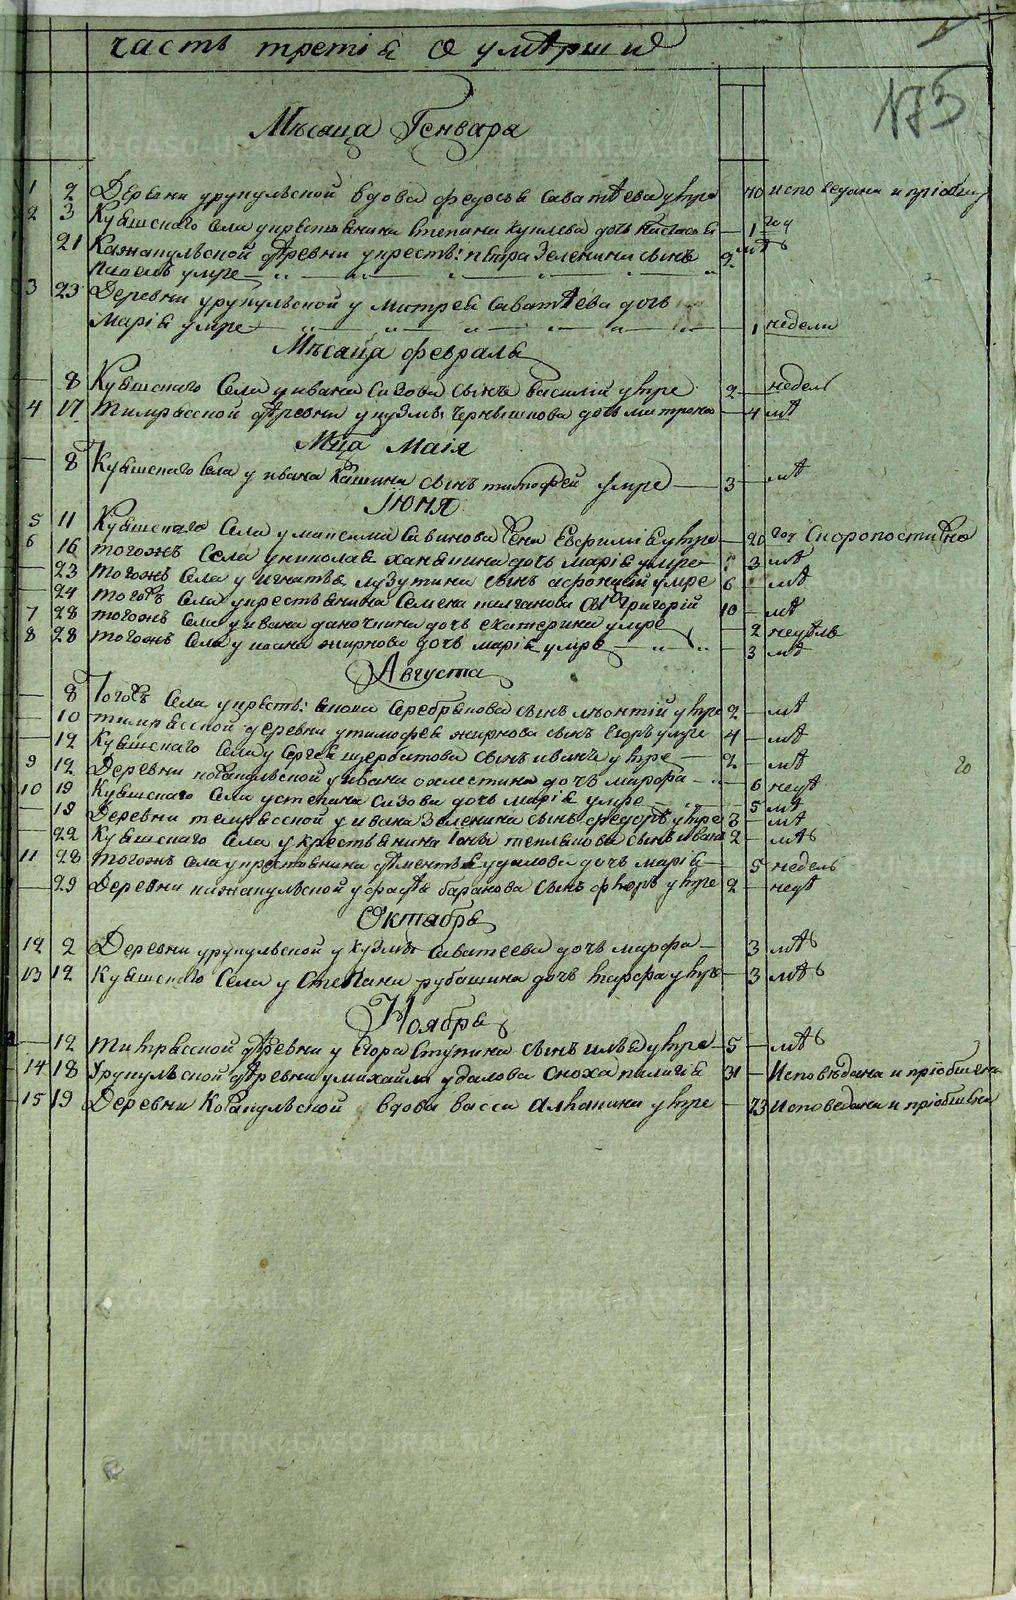 часть третія о умѣршихъ
175
Мѣсаца Генваря
1 2 Деревни урукульской вдова федосья Саватѣева умре 70 исповедана и пріобщена
2 3 Куяшскаго Села у крестьянина Степана дочь Настасья 1 год
21 Каѯакульской дѣревни у крестья: петра Зеленина сынъ 2 лѣтъ
павелъ умре
3 23 Деревни урукульской у Митрея Саватѣева дочь
Марія умре 1 недели
Мѣсаца февраля
8 Куяшскаго Села у ивана Сизова сынъ василій умре 2 недель
4 17 тимрясской дѣревни у кузмы Чернышкова дочь матрона 4 лѣ
Мца Маія
8 Куяшскаго Села у ивана Кашина сынъ тимофей умре 3 лѣ
Іюня
5 11 Куяшскаго Села у максима Савинова жена умре 20 год Скоропостижно
6 16 тогожъ Села у николая ханянина дочь марія умре 3 лѣ
23 тогожъ Села у игнатья лузутина сынъ умре 6 лѣ
24 тогожъ Села у крестьянина Семена сынъ Григорій 10 лѣ
7 28 тогожъ Села у ивана даночкина дочь екатерина умре 2 недѣль
8 28 тогожъ Села у жиркова дочь марія умре 3 лѣ
Августа
8 Тогожъ Села у крестья: Серебрякова сынъ леонтій умре 2 лѣ
10 тимрясской деревни у тимофея жиркова сынъ Егоръ умре 4 лѣ
12 Куяшскаго Села у Сергея щербатова сынъ иванъ умре 2 лѣ
9 12 Деревни у ивана дочь марфа 6 недѣ
10 19 Куяшскаго Села у степана сизова дочь марія умре 5 лѣ
19 Деревни темрясской у ивана Зеленина сынъ федоръ умре 3 лѣ
22 Куяшскаго Села у крестьянина Іоны теплякова сынъ иванъ 2 лѣтъ
11 28 тогожъ Села у крестьянина дѣментья удалова дочь марія 5 недель
29 Деревни у баранова сынъ умре 2 недѣ
20
Октября
12 2 Деревни урукульской у кузмы Саватеева дочь марфа 3 лѣтъ
13 12 Куяшскаго Села у Степана рубашина дочь марфа умре 3 лѣтъ
Ноября
12 тимрясской дѣревни у Егора Ступина сынъ илья умре 5 лѣтъ
14 18 Урукульской дѣревни у михайла удалова сноха пелагія 31 Исповѣдана и пріобщена
15 19 Деревни вдова васса умре 73 исповедана и пріобщена
METRIKI.GASO-URAL.RU